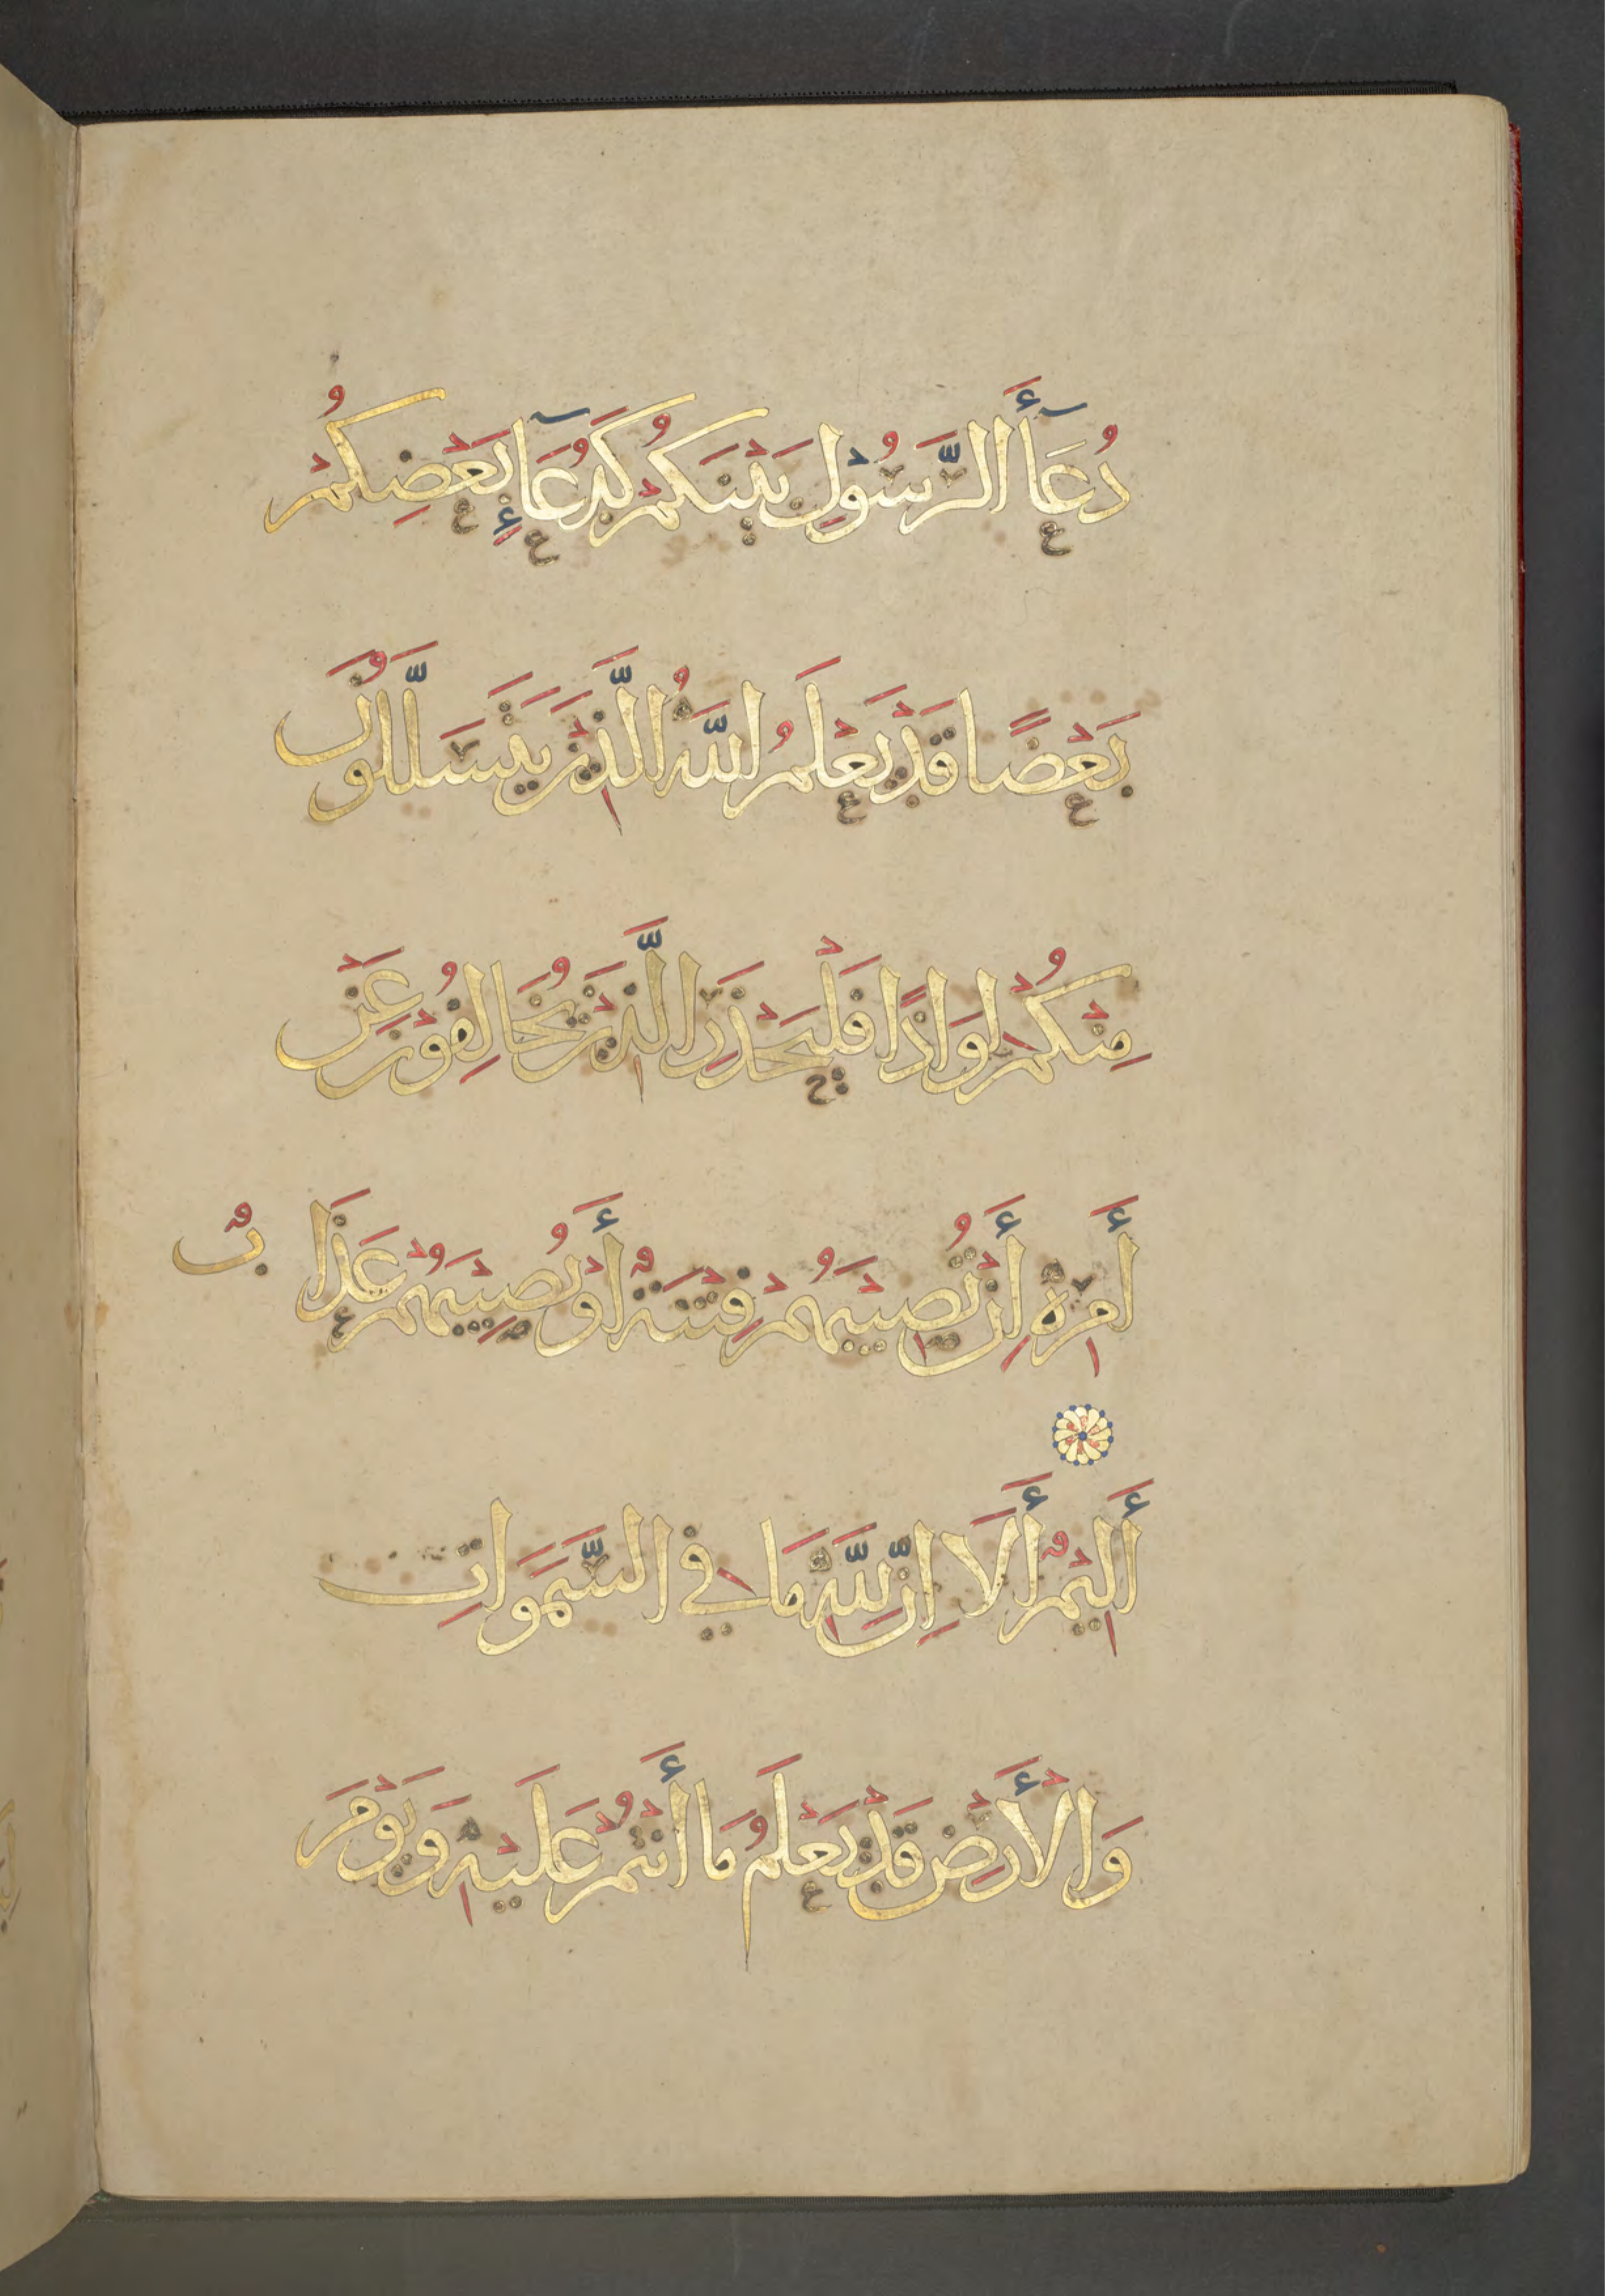 دُعَآءَ الرَّسُوْلِ بَيْنَكُمْ كَدُعَآءِ بَعْضِكُمْ
بَعْضًا قَدْ يَعْلَمُ اللَّهُ الَّذِيْنَ يَتَسَلَّلُوْنَ
مِنْكُمْ لِوَاذًا فَلْيَحْذَرِ الَّذِيْنَ يُخَالِفُوْنَ عَنْ
أَمْرِهِ أَنْ تُصِيْبَهُمْ فِتْنَةٌ أَوْ يُصِيْبَهُمْ عَذَابٌ
أَلِيْمٌ أَلَا إِنَّ لِلَّهِ مَا فِي السَّمَوَاتِ
وَالْأَرْضِ قَدْ يَعْلَمُ مَا أَنْتُمْ عَلَيْهِ وَيَوْمَ